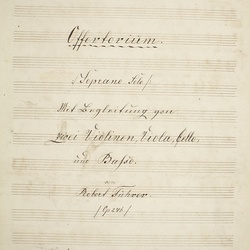 Offertorium.
(Soprano Solo)
Mit Begleitung von
zwei Violinen, Viola, Cello,
und Basso.
von
Robert Führer.
(Op. 246.)